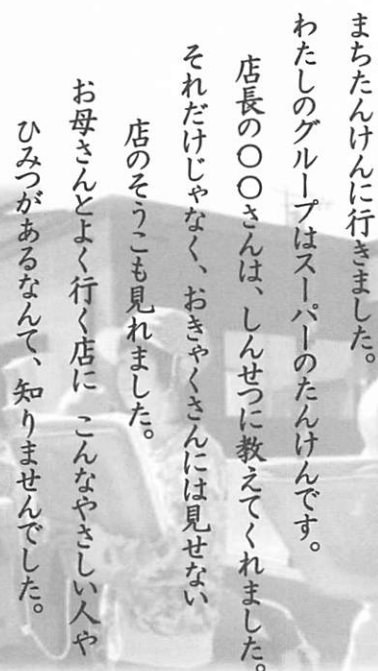 まちたんけんに行きました。
わたしのグループはスーパーのたんけんです。
店長の〇〇さんは、しんせつに教えてくれました。
それだけじゃなく、おきゃくさんには見せない
店のそうこも見れました。
お母さんとよく行く店に こんなやさしい人や
ひみつがあるなんて、知りませんでした。